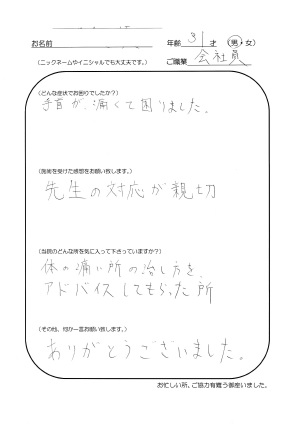 お名前 年齢 31 才 (男・女)
(ニックネームやイニシャルでも大丈夫です。) ご職業 会社員
(どんな症状でお困りでしたか?)
手首が、痛くて困りました。
(施術を受けた感想をお願い致します。)
先生の対応が親切
(当院のどんな所を気に入って下さっていますか?)
体の痛い所の治し方を、
アドバイスしてもらった所
(その他、何か一言お願い致します。)
ありがとうございました。
お忙しい所、ご協力有難う御座いました。